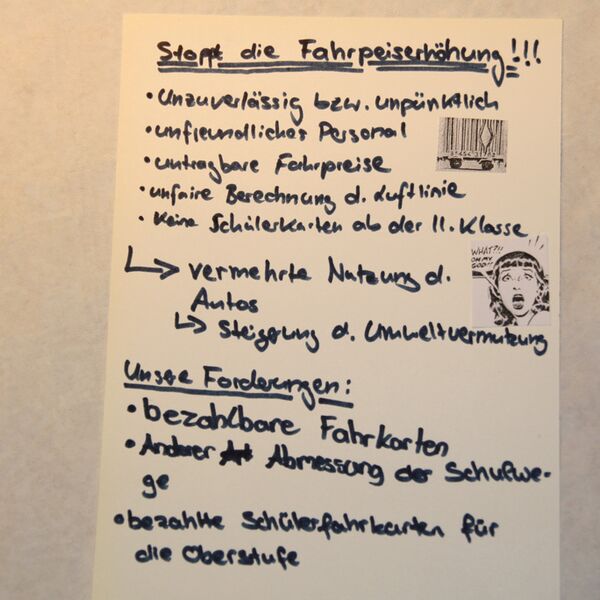 Stoppt die Fahrpeiserhöhung!!!
• Unzuverlässig bzw. unpünktlich
• unfreundliches Personal
• untragbare Fahrpreise
• unfaire Berechnung d. Luftlinie
• Keine Schülerkarten ab der 11. Klasse
WHAT?!!
OH MY
GOD!!
↳ vermehrte Nutzung d.
Autos
↳ Steigerung d. Umweltvermutzung
Unsere Forderungen:
• bezahlbare Fahrkarten
• Anderer Abmessung der Schulwe-
ge
• bezahlte Schülerfahrkarten für
die Oberstufe